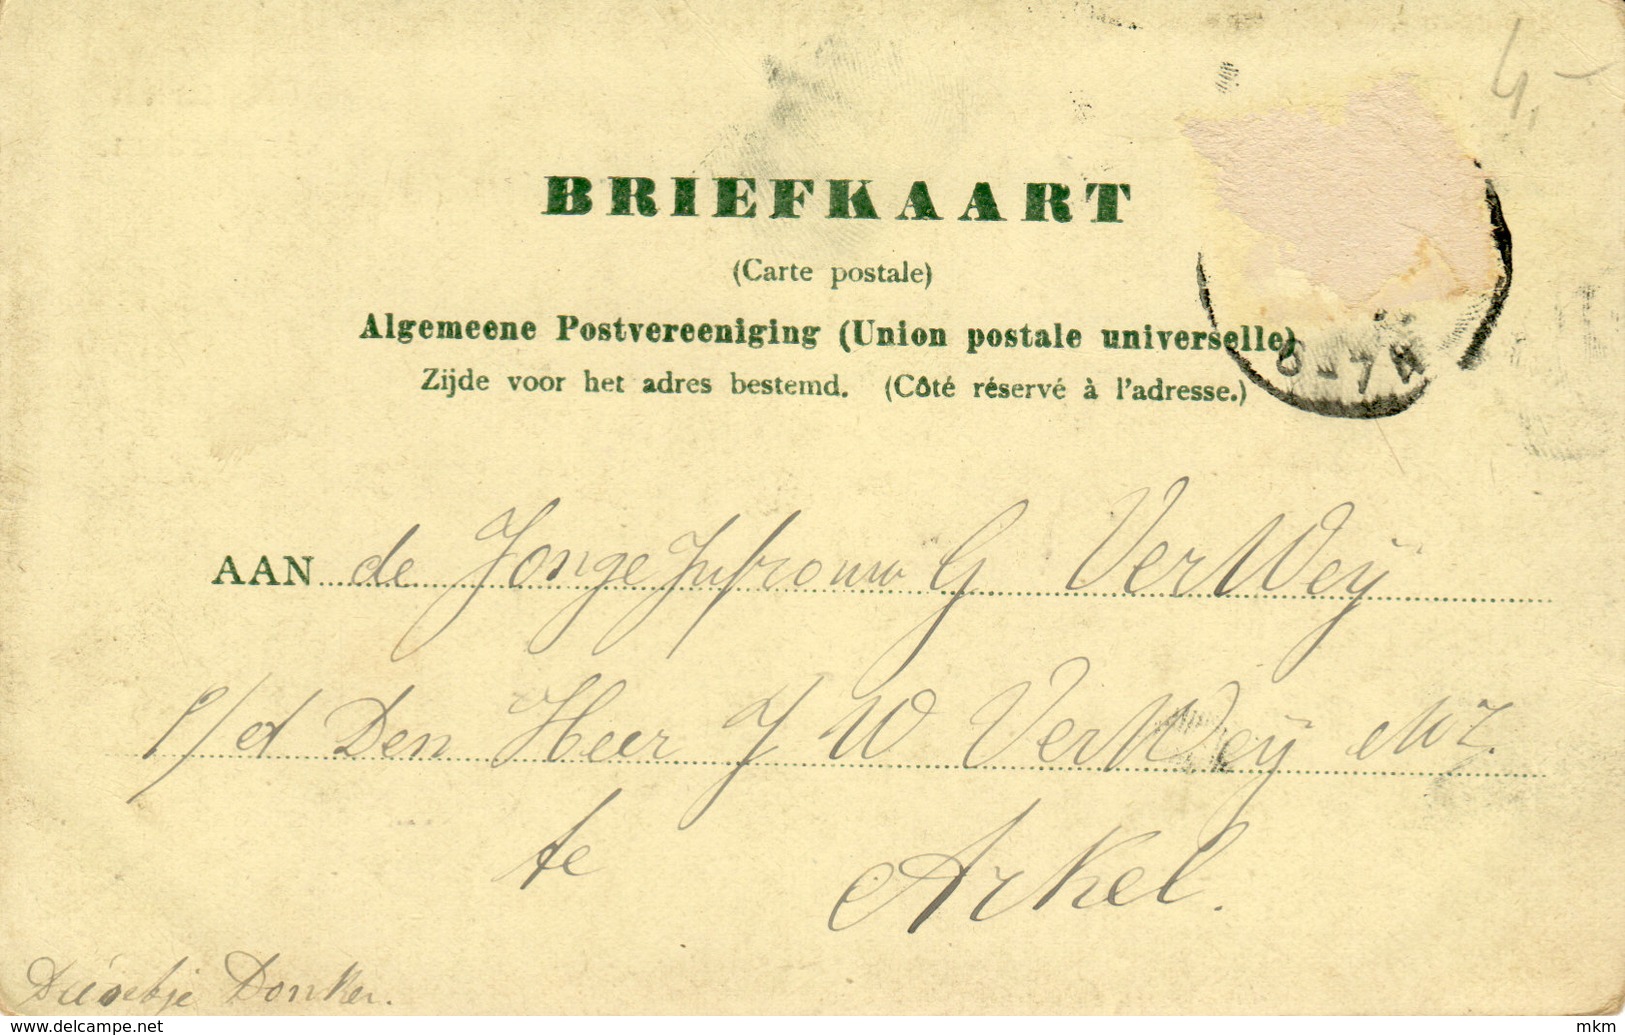 4,-
BRIEFKAART
(Carte postale)
Algemeene Postvereeniging (Union postale universelle)
Zijde voor het adres bestemd. (Côté réservé à l'adresse.)
8-7
AAN de Jonge Jufrouw G VerWeÿ
p/d Den Heer J W VerWeÿ Mz.
te Arkel.
Donker.
www.delcampe.net
mkm